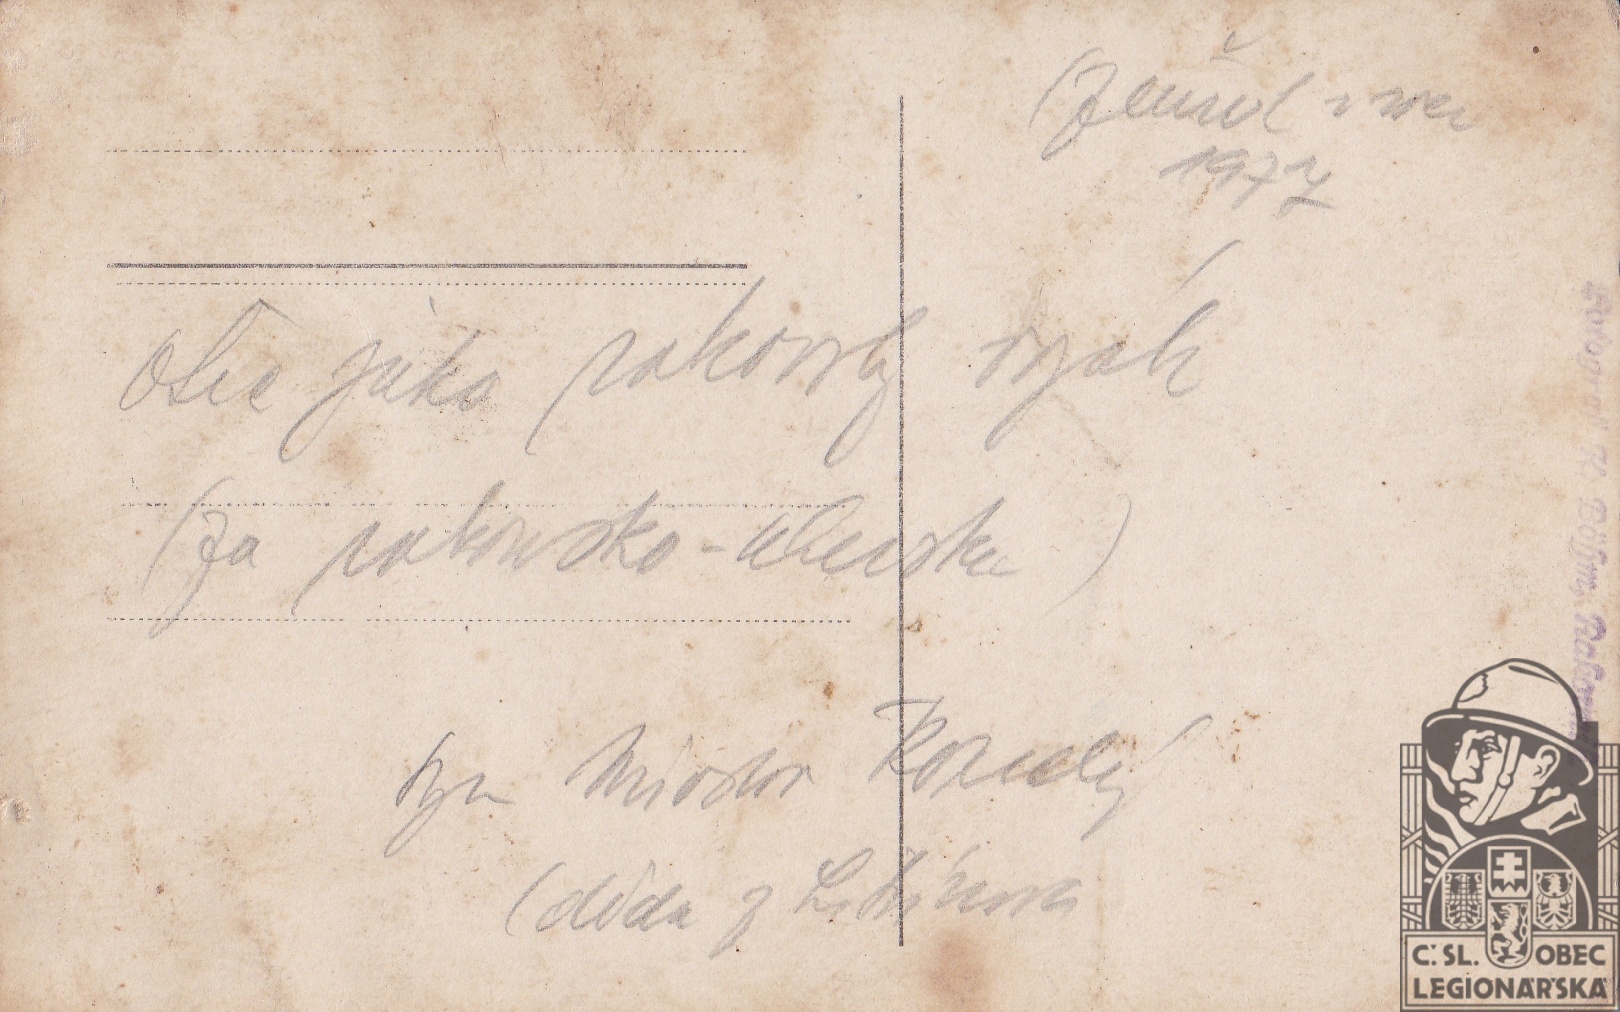 (zemřel v roce
1977
Otec jako rakouský voják
(za rakousko-uherska)
syn Miroslav
(děda z
Fotograf K. Böhm,
Č. SL. OBEC
LEGIONÁŘSKÁ